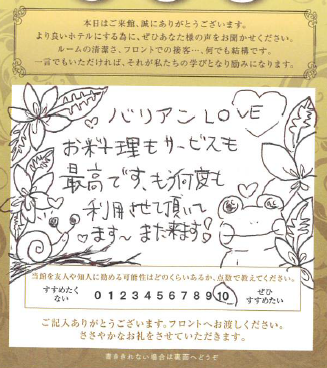 本日はご来館、誠にありがとうございます。
より良いホテルにする為に、ぜひあなた様の声をお聞かせください。
ルームの清潔さ、フロントでの接客…、何でも結構です。
一言でもいただければ、それが私たちの学びとなり励みになります。
バリアンLOVE
お料理もサービスも
最高です、も何度も
利用させて頂いて
ます〜また来ます!
当館を友人や知人に勧める可能性はどのくらいあるか、点数で教えてください。
すすめたくない 0 1 2 3 4 5 6 7 8 9 10 ぜひすすめたい
ご記入ありがとうございます。フロントへお渡しください。
ささやかなお礼をさせていただきます。
書ききれない場合は裏面へどうぞ